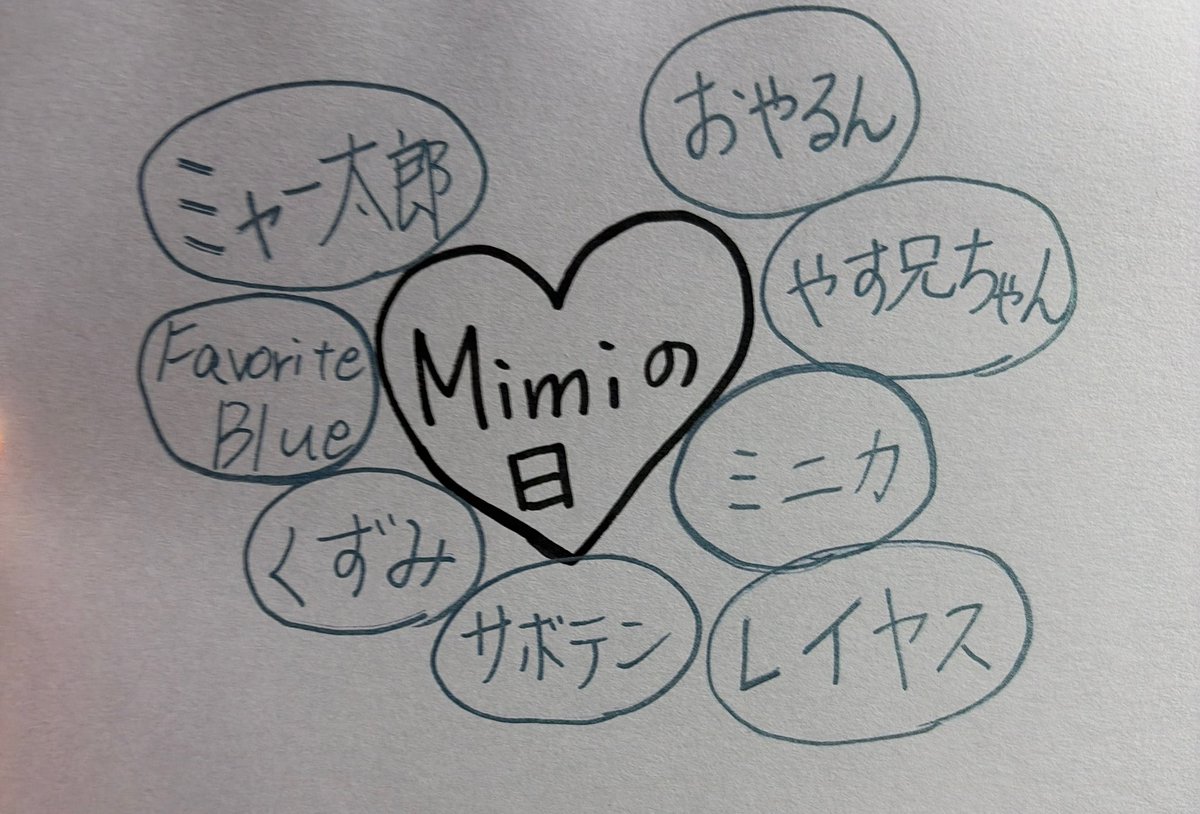 おやるん
ミャー太郎
やす兄ちゃん
Favorite
Blue
Mimiの
日
ミニカ
くずみ
サボテン
レイヤス